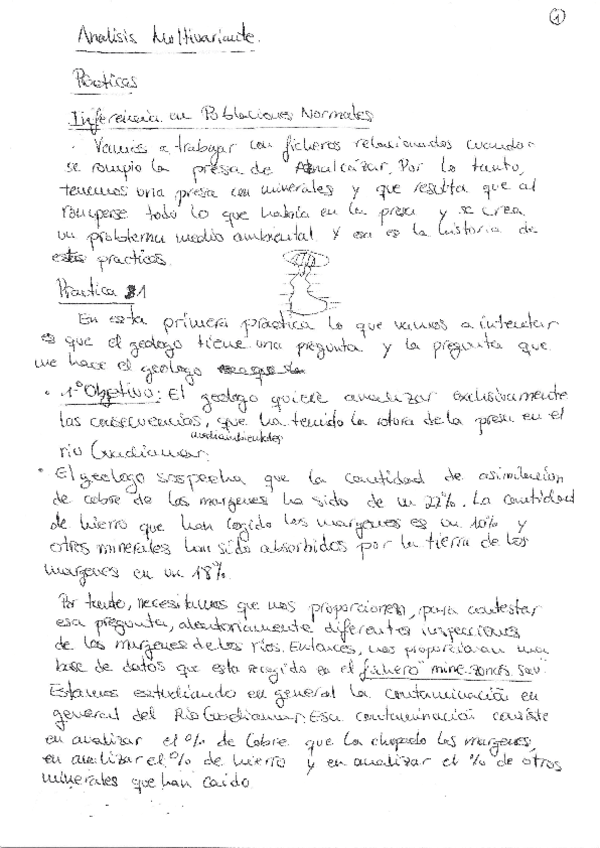 1
Analisis Multivariante.
Prácticas
Inferencia en Poblaciones Normales
· Vamos a trabajar con ficheros relacionados cuando
se rompio la presa de Aznalcázar, Por lo tanto,
tenemos una presa con minerales y que resulta que al
romperse todo lo que habia en la presa y se crea
un problema medio ambiental y esa es la historia de
estas practicas.
Practica 1
En esta primera práctica lo que vamos a intentar
es que el geologo tiene una pregunta y la pregunta que
me hace el geologo
· 1º Objetivo: El geologo quiere analizar exclusivamente
las consecuencias, que ha tenido la rotura de la presa en el
medioambientales
río Guadiamar.
· El geologo sospecha que la cantidad de asimilacion
de cobre de los margenes ha sido de un 22%. La cantidad
de hierro que han cogido los margenes es un 10% y
otros minerales han sido absorbidos por la tierra de los
margenes en un 18%.
Por tanto, necesitamos que nos proporcionen, para contestar
esa pregunta, aleatoriamente diferentes inspecciones
de los margenes de los ríos. Entonces, nos proporcionan una
base de datos que esta recogido en el fichero "mine.zonas.sav".
Estamos estudiando en general la contaminación en
general del Río Guadiamar. Esa contaminación consiste
en analizar el % de Cobre que ha chupado los margenes,
en analizar el % de hierro y en analizar el % de otros
minerales que han caido.